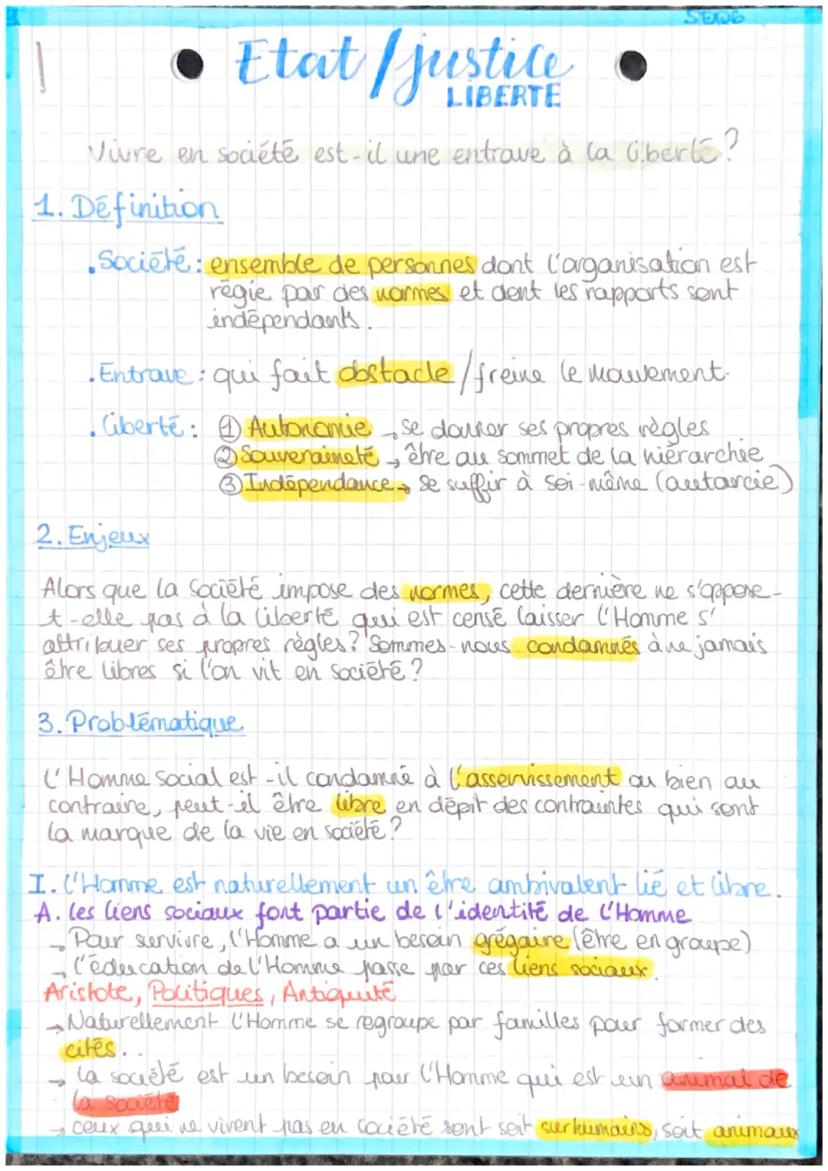 SEQ6
Etat/justice
LIBERTE
Vivre en société est-il une entrave à la liberté ?
1. Définition
. Société : ensemble de personnes dont l'organisation est
régie par des normes et dont les rapports sont
indépendants.
. Entrave : qui fait obstacle / freine le mouvement.
. Liberté : ① Autonomie → se donner ses propres règles
② Souveraineté → être au sommet de la hiérarchie
③ Indépendance → se suffir à soi-même (autarcie)
2. Enjeux
Alors que la société impose des normes, cette dernière ne s'oppose-
t-elle pas à la liberté qui est censé laisser l'Homme s'
attribuer ses propres règles ? Sommes-nous condamnés à ne jamais
être libres si l'on vit en société ?
3. Problématique
L'Homme social est-il condamné à l'asservissement ou bien au
contraire, peut-il être libre en dépit des contraintes qui sont
la marque de la vie en société ?
I. L'Homme est naturellement un être ambivalent lié et libre.
A. Les liens sociaux font partie de l'identité de l'Homme
→ Pour survivre, l'Homme a un besoin grégaire (être en groupe)
→ L'éducation de l'Homme passe par ces liens sociaux.
Aristote, Politiques, Antiquité
→ Naturellement l'Homme se regroupe par familles pour former des
cités...
→ La société est un besoin pour l'Homme qui est un animal de
la société
→ ceux qui ne vivent pas en société sont soit surhumains, soit animaux